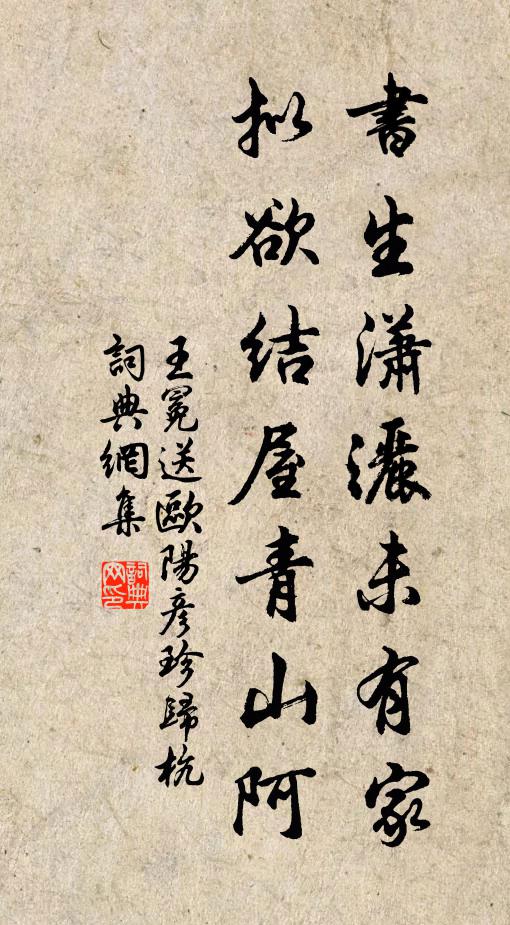 書生瀟灑未有家
拟欲結屋青山阿
王冕送歐陽彥珍歸杭
詞典網集
詞典网印